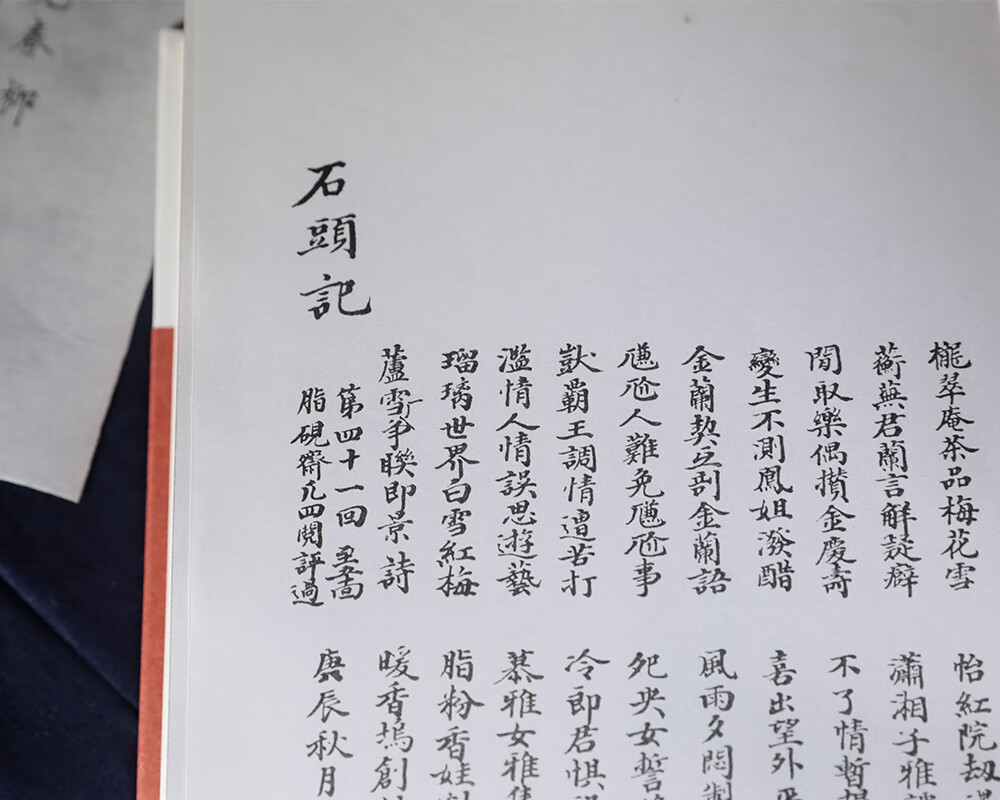 櫳翠庵茶品梅花雪 怡紅院劫
蘅蕪君蘭言解疑癖 瀟湘子雅謔
閒取樂偶攢金慶壽 不了情暫撮
變生不測鳳姐潑醋 喜出望外平
金蘭契互剖金蘭語 風雨夕悶製
尷尬人難免尷尬事 夗央女誓
獃覇王調情遭苦打 冷郎君惧
濫情人情誤思遊藝 慕雅女雅集
瑠璃世界白雪紅梅 脂粉香娃割
蘆雪广爭聯即景詩 暖香塢創
第四十一回 至
石頭記
脂硯齋凡四閱評過 庚辰秋月
春